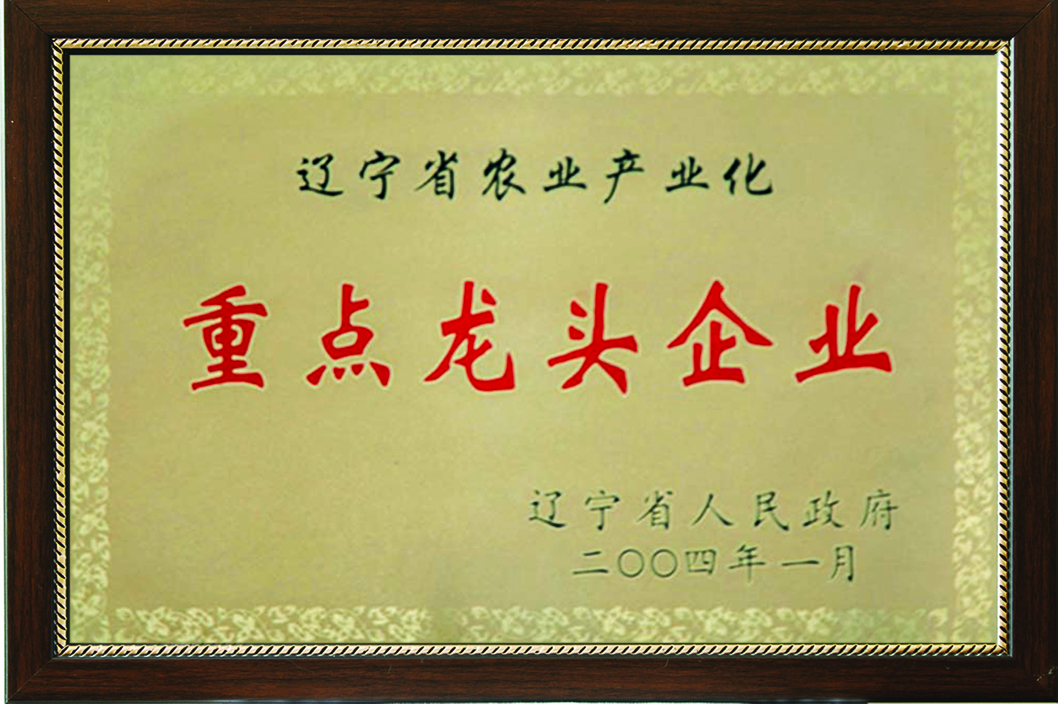 辽宁省农业产业化
重点龙头企业
辽宁省人民政府
二〇〇四年一月